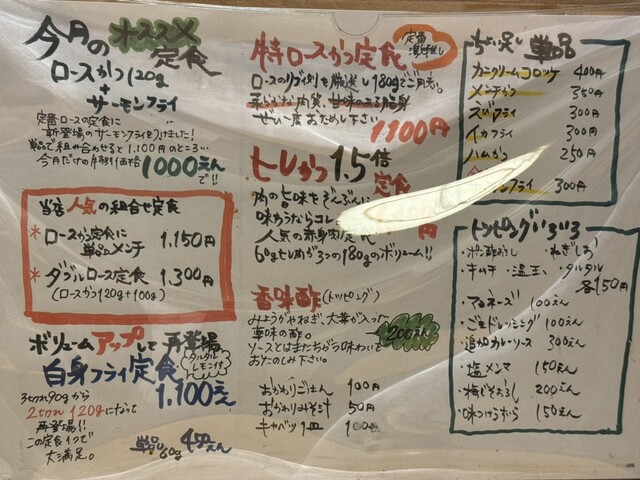 今月のオススメ定食
ロースかつ120g
+
サーモンフライ
定番ロースの定食に
新登場のサーモンフライをつけました!
単品で組み合わせると1,100円のところ
今月だけの特別価格
1000えんで!!
当店人気の組合せ定食
*ロースかつ定食に
単品メンチ 1,150円
*ダブルロース定食 1,300円
(ロースかつ120g+100g)
ボリュームアップして再登場
白身フライ定食
タルタル
レモン付
1,100えん
3切れ90gから
2切れ120gになって
再登場!!
この定食1つで
大満足。
単品60g 450えん
特ロースかつ定食
定番
激推し
ロースのリブ側を厳選し180gでご用意。
柔らかな肉質、甘味のある脂身
ぜひ一度お試し下さい
1100円
ヒレかつ1.5倍
定食
肉の旨味をぞんぶんに
味わうならコレ
人気の赤身肉定食
60gヒレ肉が3つの180gのボリューム!!
香味酢(トッピング)
みょうがやねぎ、大葉が入った
薬味の酢。
ソースとはまたちがう味わいで
おたのしみ下さい。
200えん
おかわりごはん 100円
おかわりみそ汁 50円
キャベツ1皿 100円
ちょい足し 単品
カニクリームコロッケ 400円
メンチかつ 350円
エビフライ 300円
イカフライ 300円
ハムかつ 250円
フライ 300円
トッピングいろいろ
・ポン酢おろし ・ねぎしお
・キムチ ・温玉 ・タルタル
各150円
・マヨネーズ 100えん
・ごまドレッシング 100えん
・追加カレーソース 300えん
・塩メンマ 150えん
・梅しそおろし 200えん
・味つけうずら 150えん